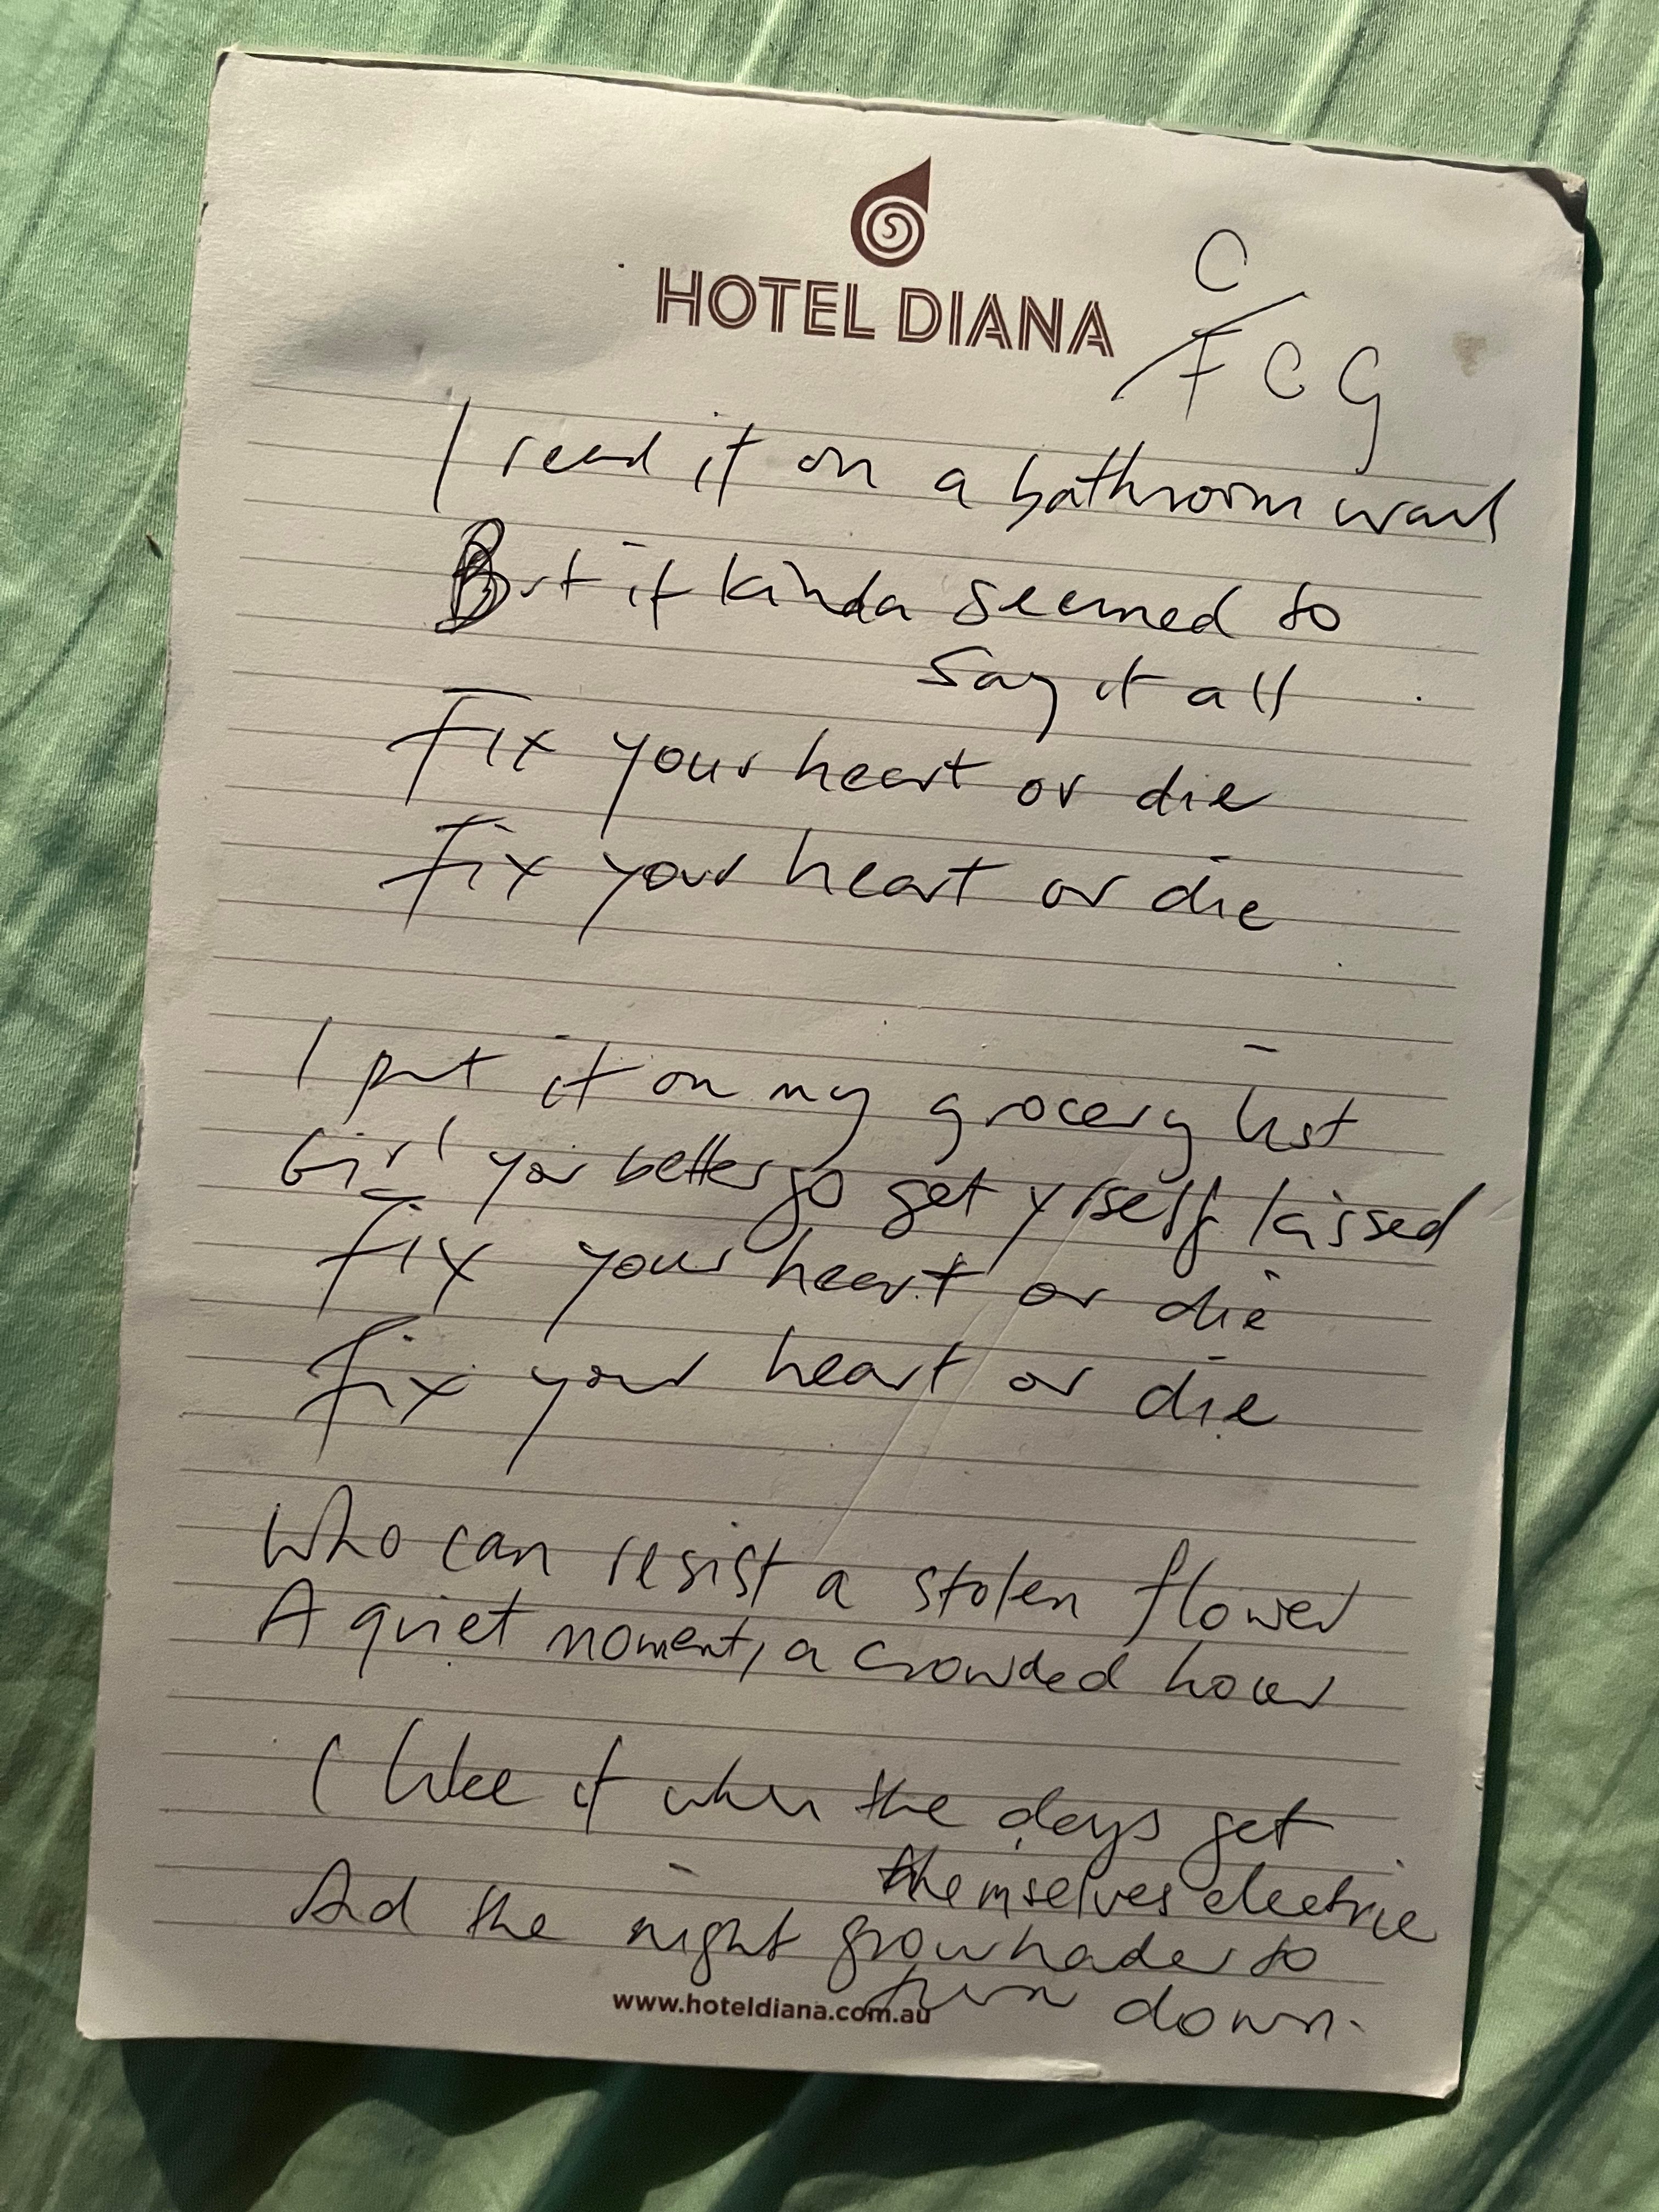 HOTEL DIANA
C
/
F C G
I read it on a bathroom wall
But it kinda seemed to
say it all
Fix your heart or die
Fix your heart or die
I put it on my grocery list
Girl you better go get yrself kissed
Fix your heart or die
Fix your heart or die
Who can resist a stolen flower
A quiet moment, a crowded hour
I like it when the days get
themselves electric
And the night grow harder to
turn down.
www.hoteldiana.com.au